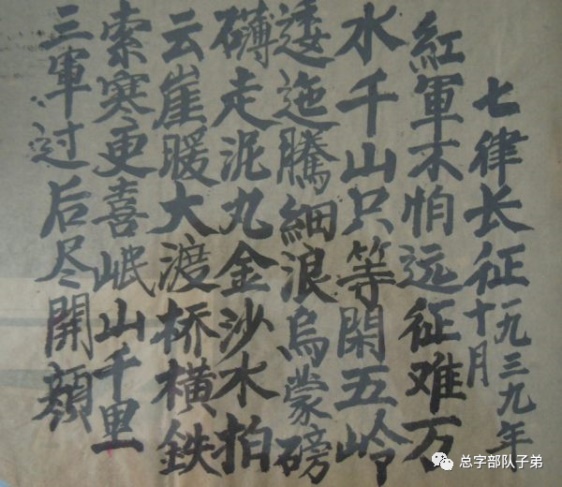 七律长征一九三九年
十月
紅軍不怕远征难万
水千山只等閑五岭
逶迤騰細浪烏蒙磅
礴走泥丸金沙水拍
云崖暖大渡桥橫鉄
索寒更喜岷山千里
三軍过后尽開顔
总字部队子弟